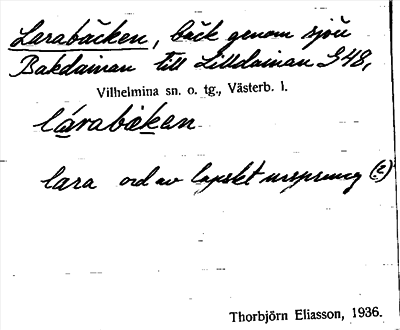 Larabäcken, bäck genom sjön
Bakdainan till Lilldainan S48,
Vilhelmina sn. o. tg., Västerb. l.
lárabäken
lara ord av lapskt ursprung (?)
Thorbjörn Eliasson, 1936.